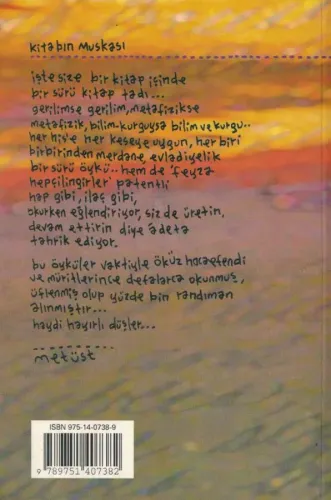 kitabın muskası
işte size bir kitap içinde
bir sürü kitap tadı...
gerilimse gerilim, metafizikse
metafizik, bilim-kurguysa bilim ve kurgu..
her hive her keseye uygun, her biri
birbirinden merdane, evladiyelik
bir sürü öykü.. hem de 'feyza
hepçilingirler' patentli
hap gibi, ilaç gibi,
okurken eğlendiriyor, siz de üretin,
devam ettirin diye adeta
tahrik ediyor.
bu öyküler vaktiyle öküz hocaefendi
ve müritlerince defalarca okunmuş,
üflenmiş olup yüzde bin randıman
alınmıştır...
haydi hayırlı düşler...
metüst
ISBN 975-14-0738-9
9 789751 407382